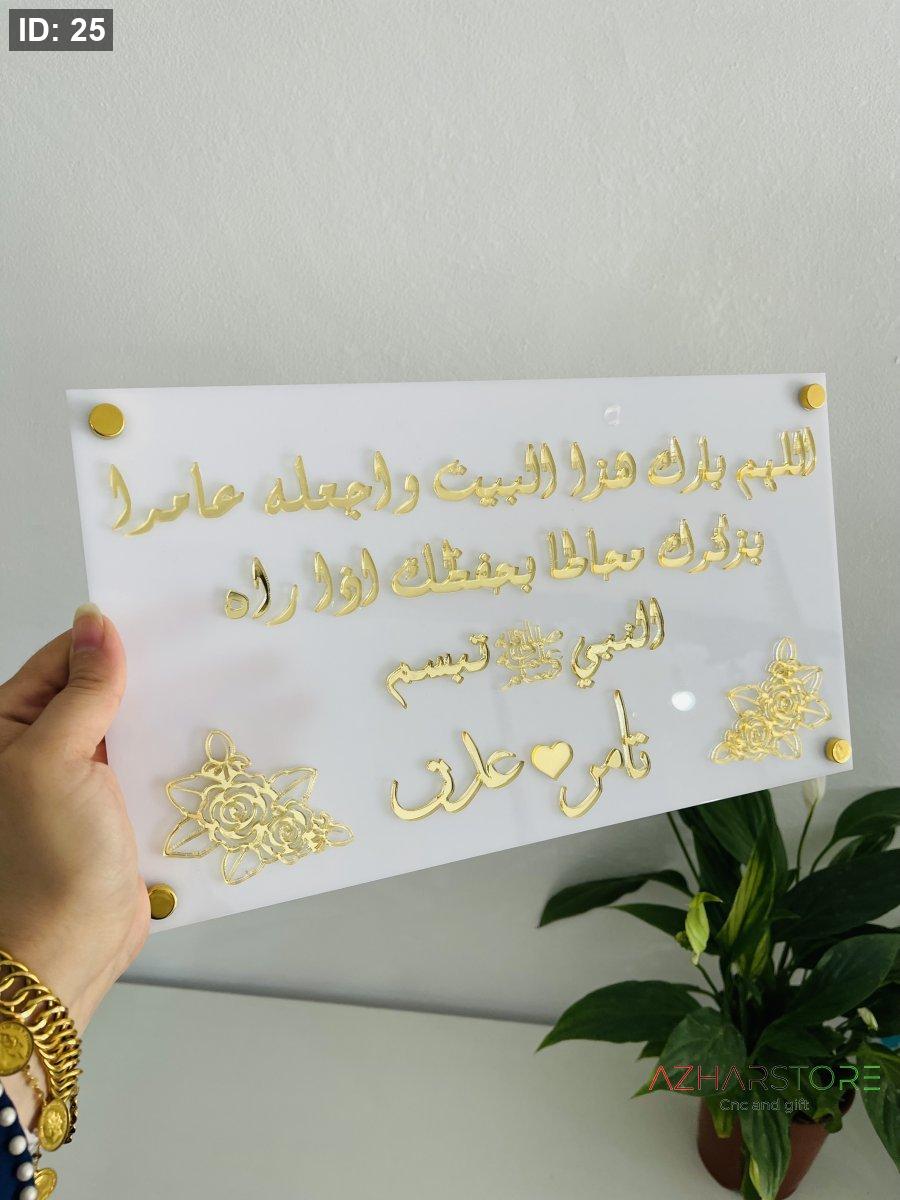 ID: 25
اللهم بارك هذا البيت واجعله عامرا
بذكرك محاطا بحفظك اذا راه
النبي ﷺ تبسم
تامر
AZHARSTORE
Cnc and gift